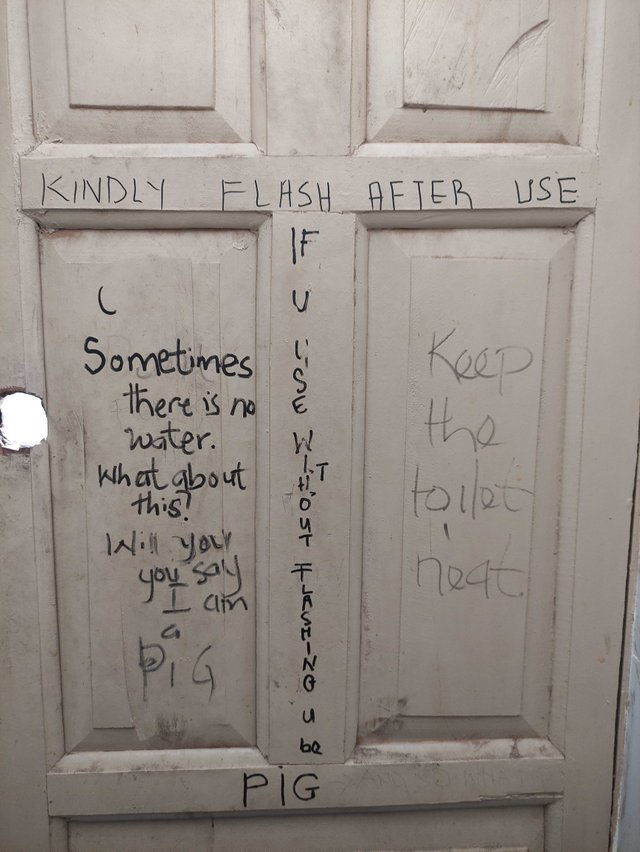 KINDLY FLASH AFTER USE
IF
U
USE
WITHOUT
FLASHING
U
be
PIG
Sometimes
there is no
water.
What about
this?
Will you
you say
I am
a
PIG
Keep
the
toilet
neat.